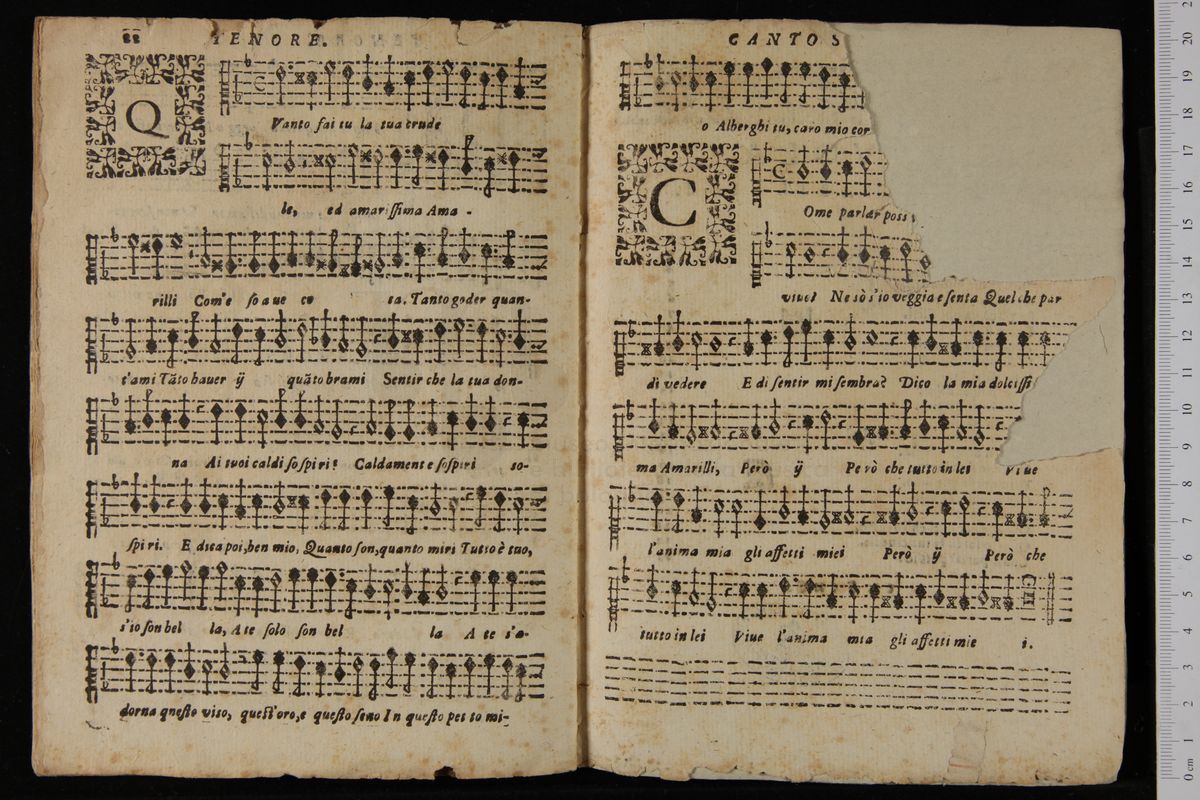 TENORE.
Q
Vanto fai tu la tua crude
le, ed amarissima Ama-
rilli Com'e soaue ta. Tanto goder quan-
t'ami Tãto hauer ÿ quãto brami Sentir che la tua don-
na Ai tuoi caldi sospiri? Caldamente sospiri so-
spiri. E dica poi, ben mio, Quanto son, quanto miri Tutto è tuo,
s'io son bel la, A te solo son bel la A te s'a-
dorna questo viso, quest'oro, e questo seno In questo pet to mi-
CANTO S
o Alberghi tu, caro mio cor
C
Ome parlar poss
viue? Ne sò s'io veggia e senta Quel che par
di vedere E di sentir mi sembra? Dico la mia dolcissi
ma Amarilli, Però ÿ Però che tutto in lei Viue
l'anima mia gli affetti miei Però ÿ Però che
tutto in lei Viue l'anima mia gli affetti mie i.
0 cm 1 2 3 4 5 6 7 8 9 10 11 12 13 14 15 16 17 18 19 20